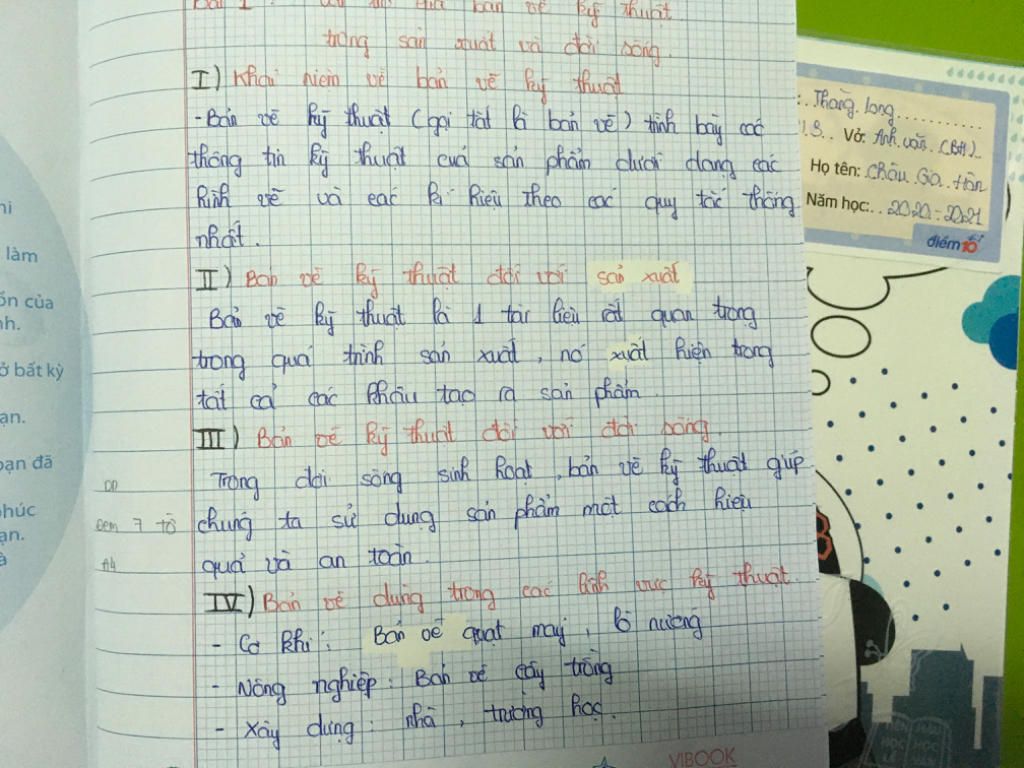 bản vẽ kỹ thuật
trong sản xuất và đời sống.
I) Khái niệm về bản vẽ kỹ thuật
-Bản vẽ kỹ thuật (gọi tắt là bản vẽ) trình bày các
thông tin kỹ thuật của sản phẩm dưới dạng các
hình vẽ và các kí hiệu theo các quy tắc thống
nhất.
II) Bản vẽ kỹ thuật đối với sản xuất
Bản vẽ kỹ thuật là 1 tài liệu rất quan trọng
trong quá trình sản xuất, nó xuất hiện trong
tất cả các khâu tạo ra sản phẩm
III) Bản vẽ kỹ thuật đối với đời sống.
Trong đời sống sinh hoạt, bản vẽ kỹ thuật giúp
chúng ta sử dụng sản phẩm một cách hiệu
quả và an toàn.
IV) Bản vẽ dùng trong các lĩnh vực kỹ thuật.
- Cơ khí: Bản vẽ quạt máy, lò nướng
- Nông nghiệp: Bản vẽ cây trồng
- Xây dựng: nhà, trường học.
DD
Đem 7 tờ
A4
VIBOOK
làm
ổn của
nh.
ở bất kỳ
ạn.
bạn đã
phúc
ạn.
Thăng Long
Vở: Anh văn (BH)
Họ tên: Châu Gia Hân
Năm học: 2020-2021
điểm 10